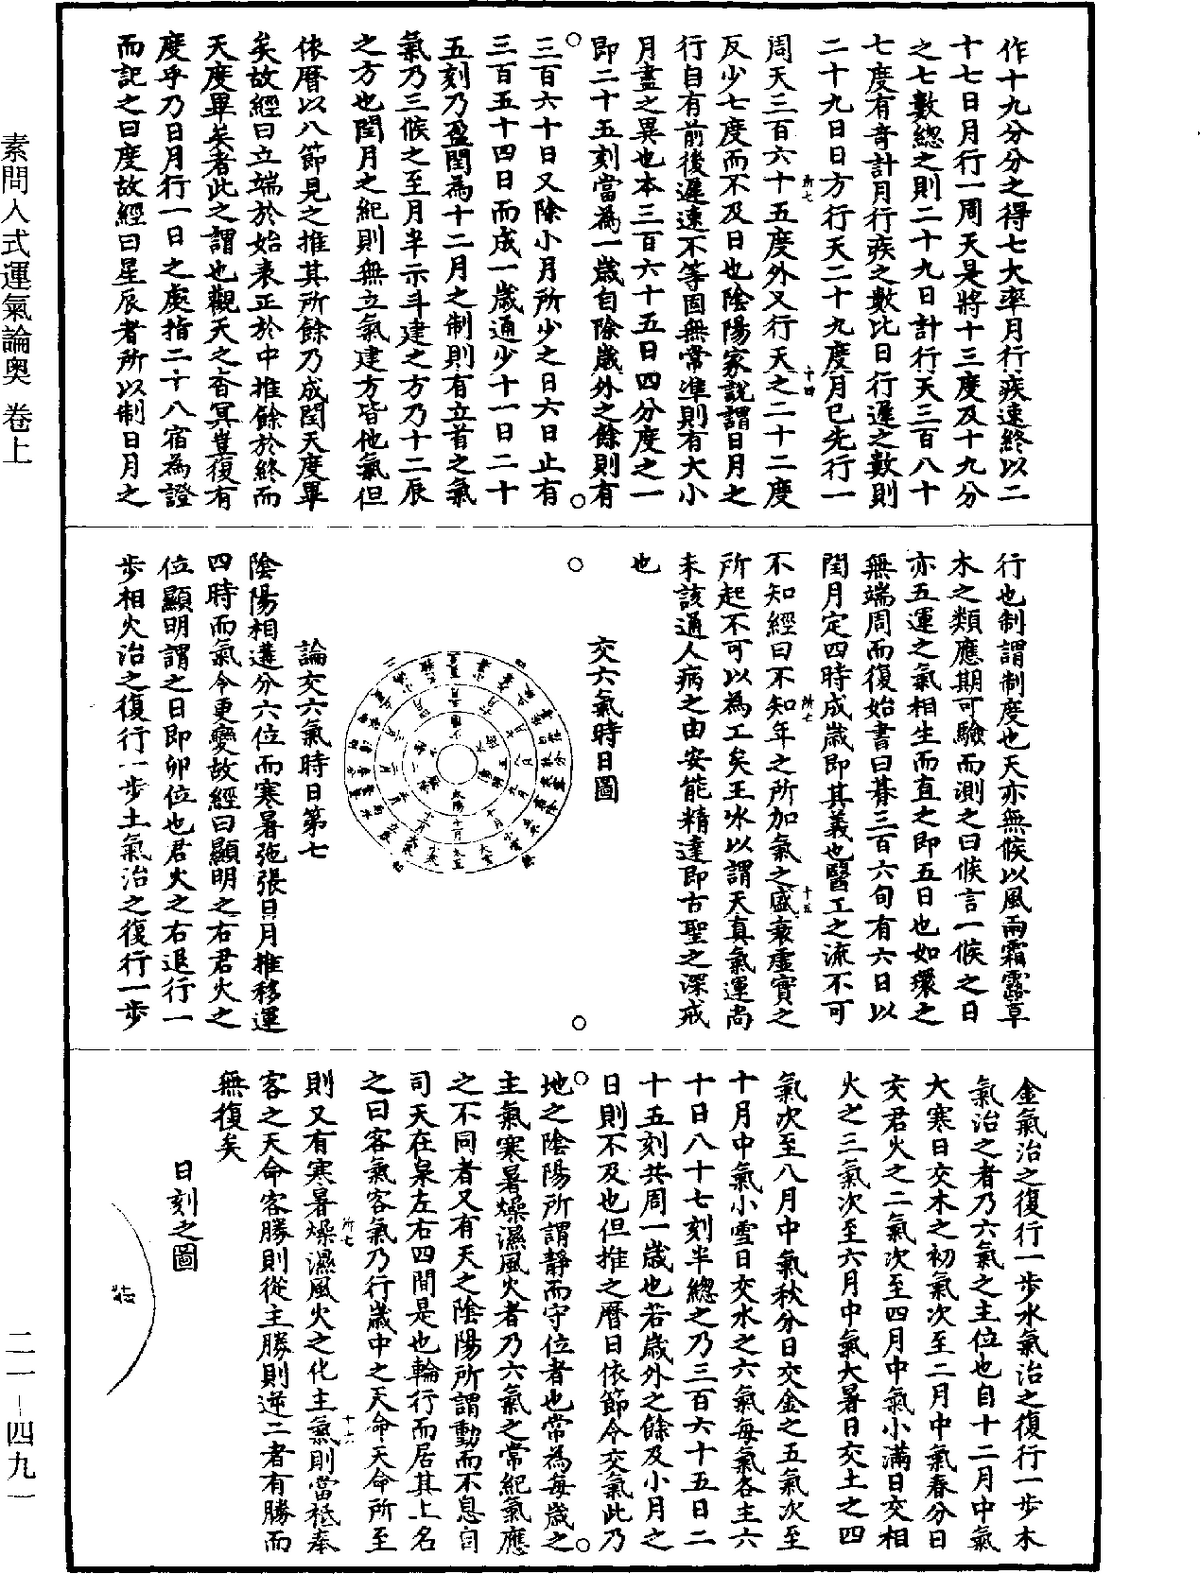 作十九分分之得七大率月行疾速終以二
十七日月行一周天是將十三度及十九分
之七數總之則二十九日計行天三百八十
七度有奇計月行疾之數比日行遲之數則
二十九日日方行天二十九度月已先行一
周天三百六十五度外又行天之二十二度
反少七度而不及日也陰陽家說謂日月之
行自有前後遲速不等固無常準則有大小
月盡之異也本三百六十五日四分度之一
即二十五刻當為一歲自除歲外之餘則有
三百六十日又除小月所少之日六日止有
三百五十四日而成一歲通少十一日二十
五刻乃盈閏為十二月之制則有立首之氣
氣乃三候之至月半示斗建之方乃十二辰
之方也閏月之紀則無立氣建方皆他氣但
依曆以八節見之推其所餘乃成閏天度畢
矣故經曰立端於始表正於中推餘於終而
天度畢矣者此之謂也觀天之杳冥豈復有
度乎乃日月行一日之處指二十八宿為證
而記之曰度故經曰星辰者所以制日月之
所七
十四
行也制謂制度也天亦無候以風雨霜露草
木之類應期可驗而測之曰候言一候之日
亦五運之氣相生而直之即五日也如環之
無端周而復始書曰朞三百六旬有六日以
閏月定四時成歲即其義也醫工之流不可
不知經曰不知年之所加氣之盛衰虛實之
所起不可以為工矣王冰以謂天真氣運尚
未該通人病之由安能精達即古聖之深戒
也
所七
十五
交六氣時日圖
論交六氣時日第七
陰陽相遘分六位而寒暑弛張日月推移運
四時而氣令更變故經曰顯明之右君火之
位顯明謂之日即卯位也君火之右退行一
步相火治之復行一步土氣治之復行一步
金氣治之復行一步水氣治之復行一步木
氣治之者乃六氣之主位也自十二月中氣
大寒日交木之初氣次至二月中氣春分日
交君火之二氣次至四月中氣小滿日交相
火之三氣次至六月中氣大暑日交土之四
氣次至八月中氣秋分日交金之五氣次至
十月中氣小雪日交水之六氣每氣各主六
十日八十七刻半總之乃三百六十五日二
十五刻共周一歲也若歲外之餘及小月之
日則不及也但推之曆日依節令交氣此乃
地之陰陽所謂靜而守位者也常為每歲之
主氣寒暑燥濕風火者乃六氣之常紀氣應
之不同者又有天之陰陽所謂動而不息自
司天在泉左右四間是也輪行而居其上名
之曰客氣客氣乃行歲中之天命天命所至
則又有寒暑燥濕風火之化主氣則當祗奉
客之天命客勝則從主勝則逆二者有勝而
無復矣
所七
十六
日刻之圖
素問入式運氣論奧 卷上
二一－四九一